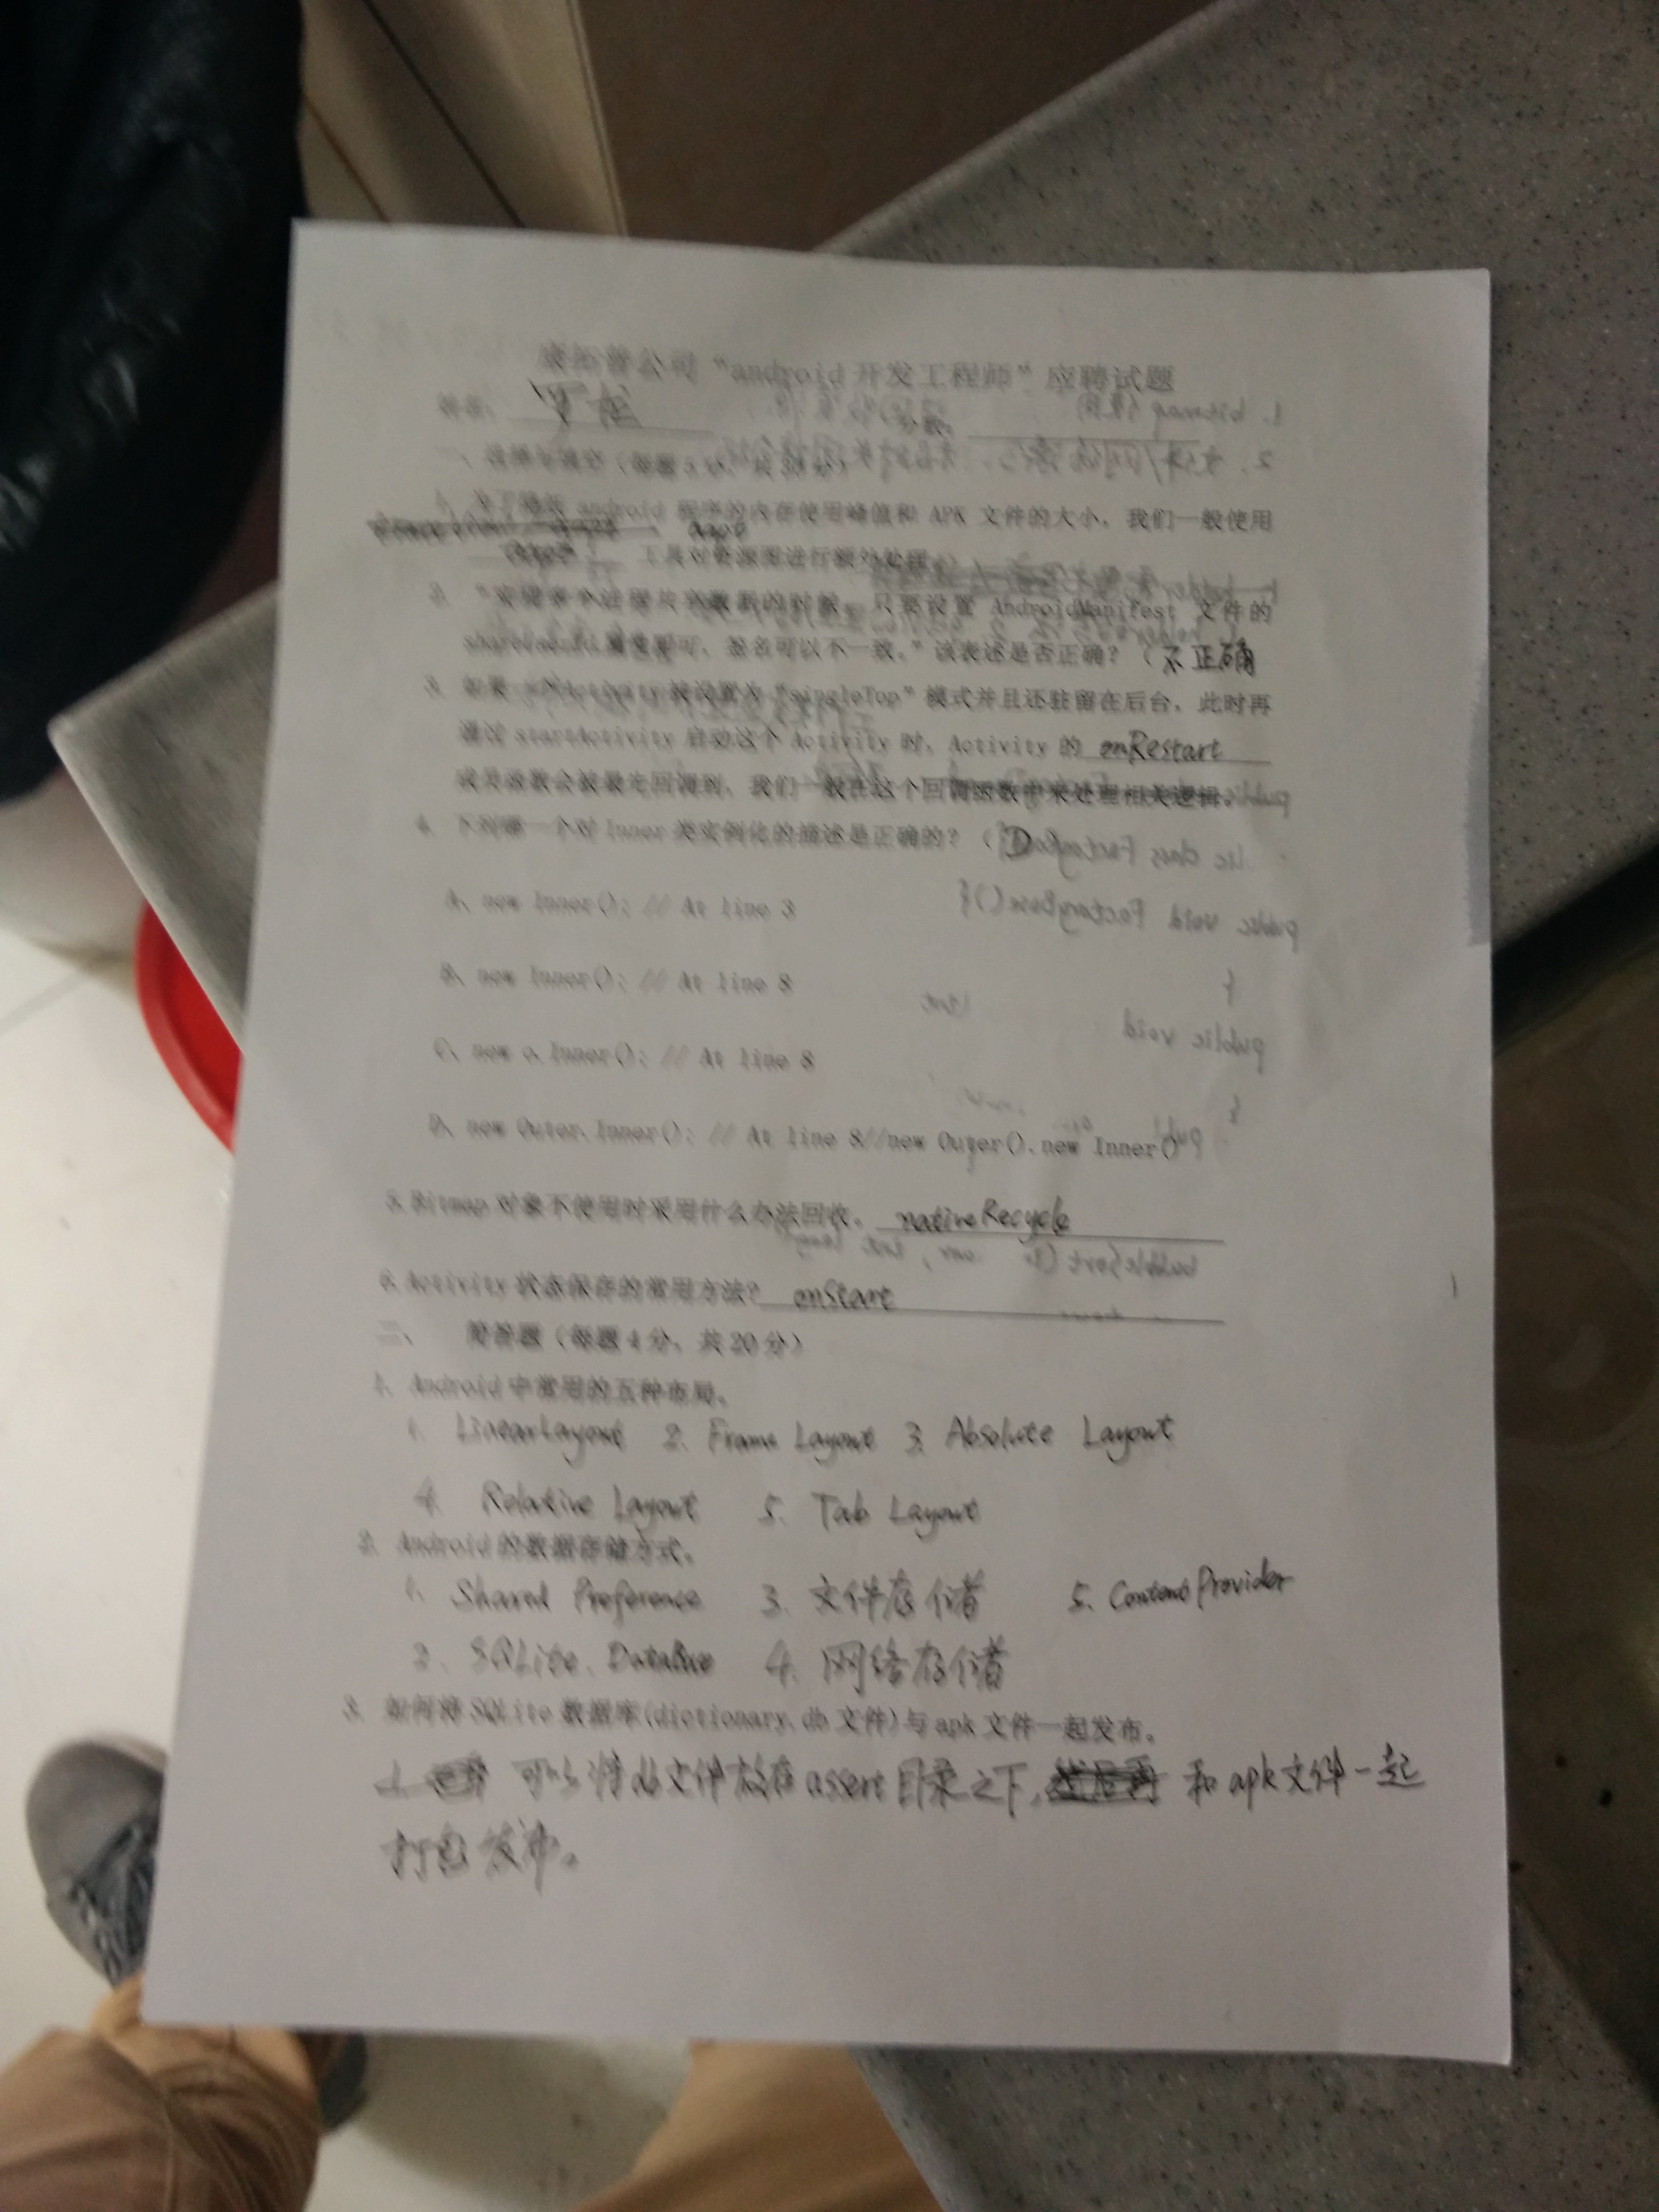 康拓普公司“android 开发工程师”应聘试题
姓名： 分数：
一、选择与填空（每题5分，共30分）
1. 为了降低 android 程序的内存使用峰值和 APK 文件的大小，我们一般使用
aapt
工具对资源图进行额外处理。
2. “实现多个进程共享数据的时候，只要设置 AndroidManifest 文件的
属性即可，签名可以不一致。”该表述是否正确？（不正确
3. 如果一个Activity 被设置为“singleTop”模式并且还驻留在后台，此时再
通过 startActivity 启动这个 Activity 时，Activity 的 onRestart
成员函数会被最先回调到，我们一般在这个回调函数中来处理相关逻辑。
4. 下列哪一个对 Inner 类实例化的描述是正确的？（D
A、new Inner(); // At line 3
B、new Inner(); // At line 8
C、new o.Inner(); // At line 8
D、new Outer.Inner(); // At line 8//new Outer().new Inner()
5.Bitmap 对象不使用时采用什么办法回收。 nativeRecycle
6.Activity 状态保存的常用方法？ onStart
二、 简答题（每题4分，共20分）
1、Android 中常用的五种布局。
1. LinearLayout 2. Frame Layout 3. Absolute Layout
4. Relative Layout 5. Tab Layout
2、Android 的数据存储方式。
1. Shared Preference 3. 文件存储 5. ContentProvider
2. SQLite DataBase 4. 网络存储
3、如何将 SQLite 数据库(dictionary.db 文件)与 apk 文件一起发布。
可以将db文件放在assert目录之下， 和apk文件一起
打包发布。